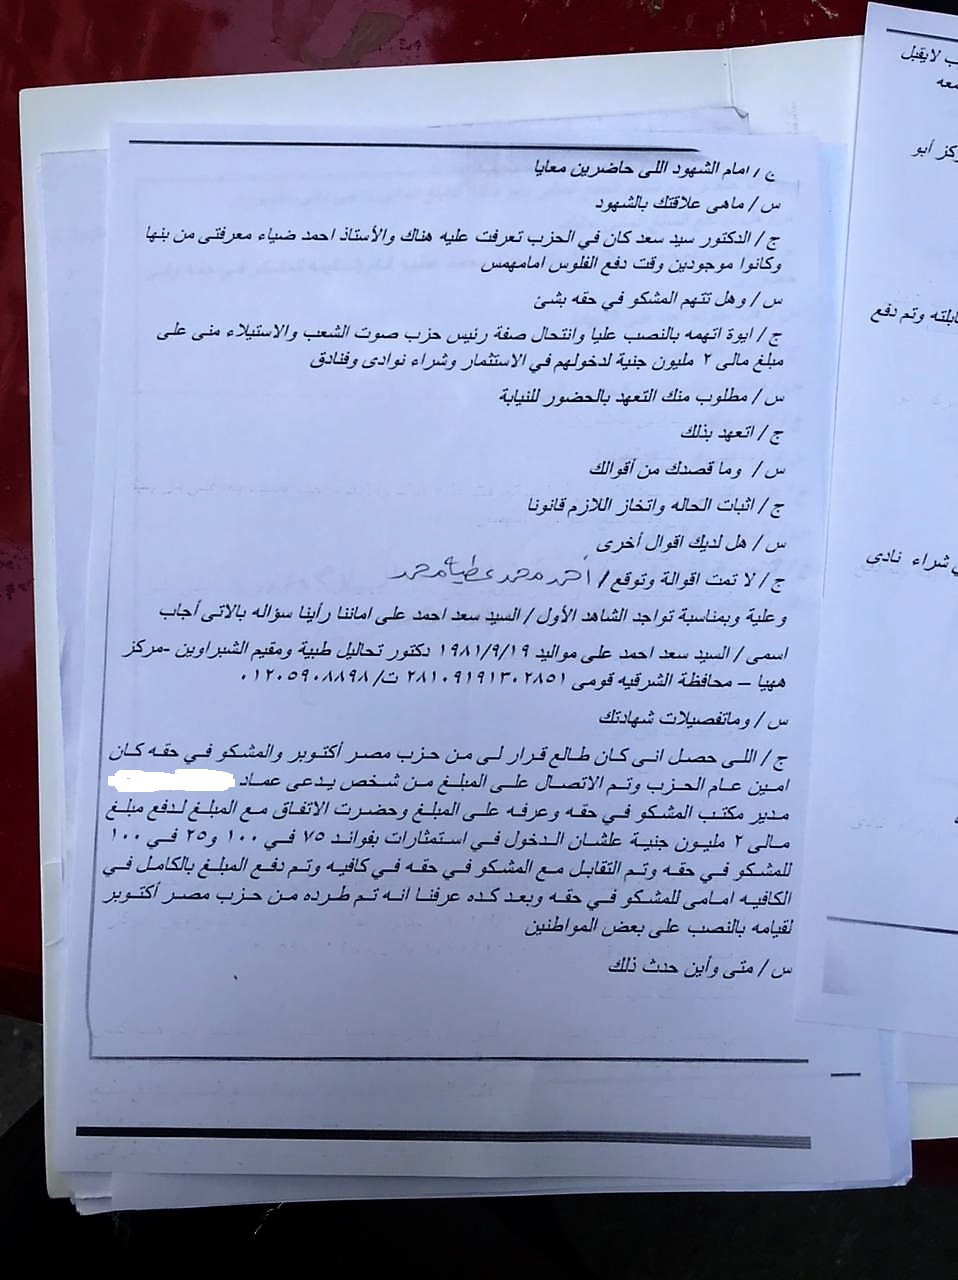 ج / امام الشهود اللى حاضرين معايا
س / ماهى علاقتك بالشهود
ج / الدكتور سيد سعد كان في الحزب تعرفت عليه هناك والأستاذ احمد ضياء معرفتى من بنها
وكانوا موجودين وقت دفع الفلوس امامهمس
س / وهل تتهم المشكو في حقه بشئ
ج / ايوة اتهمه بالنصب عليا وانتحال صفة رئيس حزب صوت الشعب والاستيلاء منى على
مبلغ مالى ٢ مليون جنية لدخولهم في الاستثمار وشراء نوادى وفنادق
س / مطلوب منك التعهد بالحضور للنيابة
ج / اتعهد بذلك
س / وما قصدك من أقوالك
ج / اثبات الحاله واتخاز اللازم قانونا
س / هل لديك اقوال أخرى
ج / لا تمت اقوالة وتوقع / أحمد محمد عطية محمد
وعلية وبمناسبة تواجد الشاهد الأول / السيد سعد احمد على اماننا رأينا سؤاله بالاتى أجاب
اسمى / السيد سعد احمد على مواليد ١٩٨١/٩/١٩ دكتور تحاليل طبية ومقيم الشبراوين -مركز
ههيا – محافظة الشرقيه قومى ٢٨١٠٩١٩١٣٠٢٨٥١ ت/ ٠١٢٠٥٩٠٨٨٩٨
س / وماتفصيلات شهادتك
ج / اللى حصل انى كان طالع قرار لى من حزب مصر أكتوبر والمشكو في حقه كان
امين عام الحزب وتم الاتصال على المبلغ من شخص يدعى عماد
مدير مكتب المشكو في حقه وعرفه على المبلغ وحضرت الاتفاق مع المبلغ لدفع مبلغ
مالى ٢ مليون جنية علشان الدخول في استمثارات بفوائد ٧٥ في ١٠٠ و٢٥ في ١٠٠
للمشكو في حقه وتم التقابل مع المشكو في حقه في كافيه وتم دفع المبلغ بالكامل في
الكافيه امامى للمشكو في حقه وبعد كده عرفنا انه تم طرده من حزب مصر أكتوبر
لقيامه بالنصب على بعض المواطنين
س / متى وأين حدث ذلك
لايقبل
أبو
وتم دفع
شراء نادي